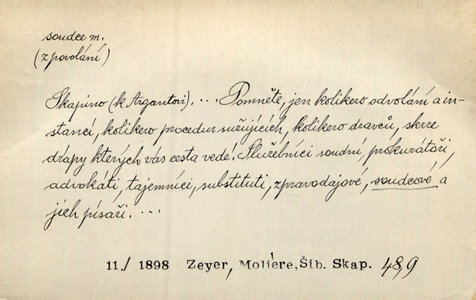 soudce m.
(z povolání)
Skapino (k Argantovi). .. Pomněte, jen kolikero odvolání a in-
stancí, kolikero procedur sužujících, kolikero dravců, skrze
drápy kterých vás cesta vede! Služebníci soudní, prokurátoři,
advokáti, tajemníci, substituti, zpravodajové, soudcové a
jich písaři. ...
11./ 1898 Zeyer, Molière, Šib. Skap. 48,9